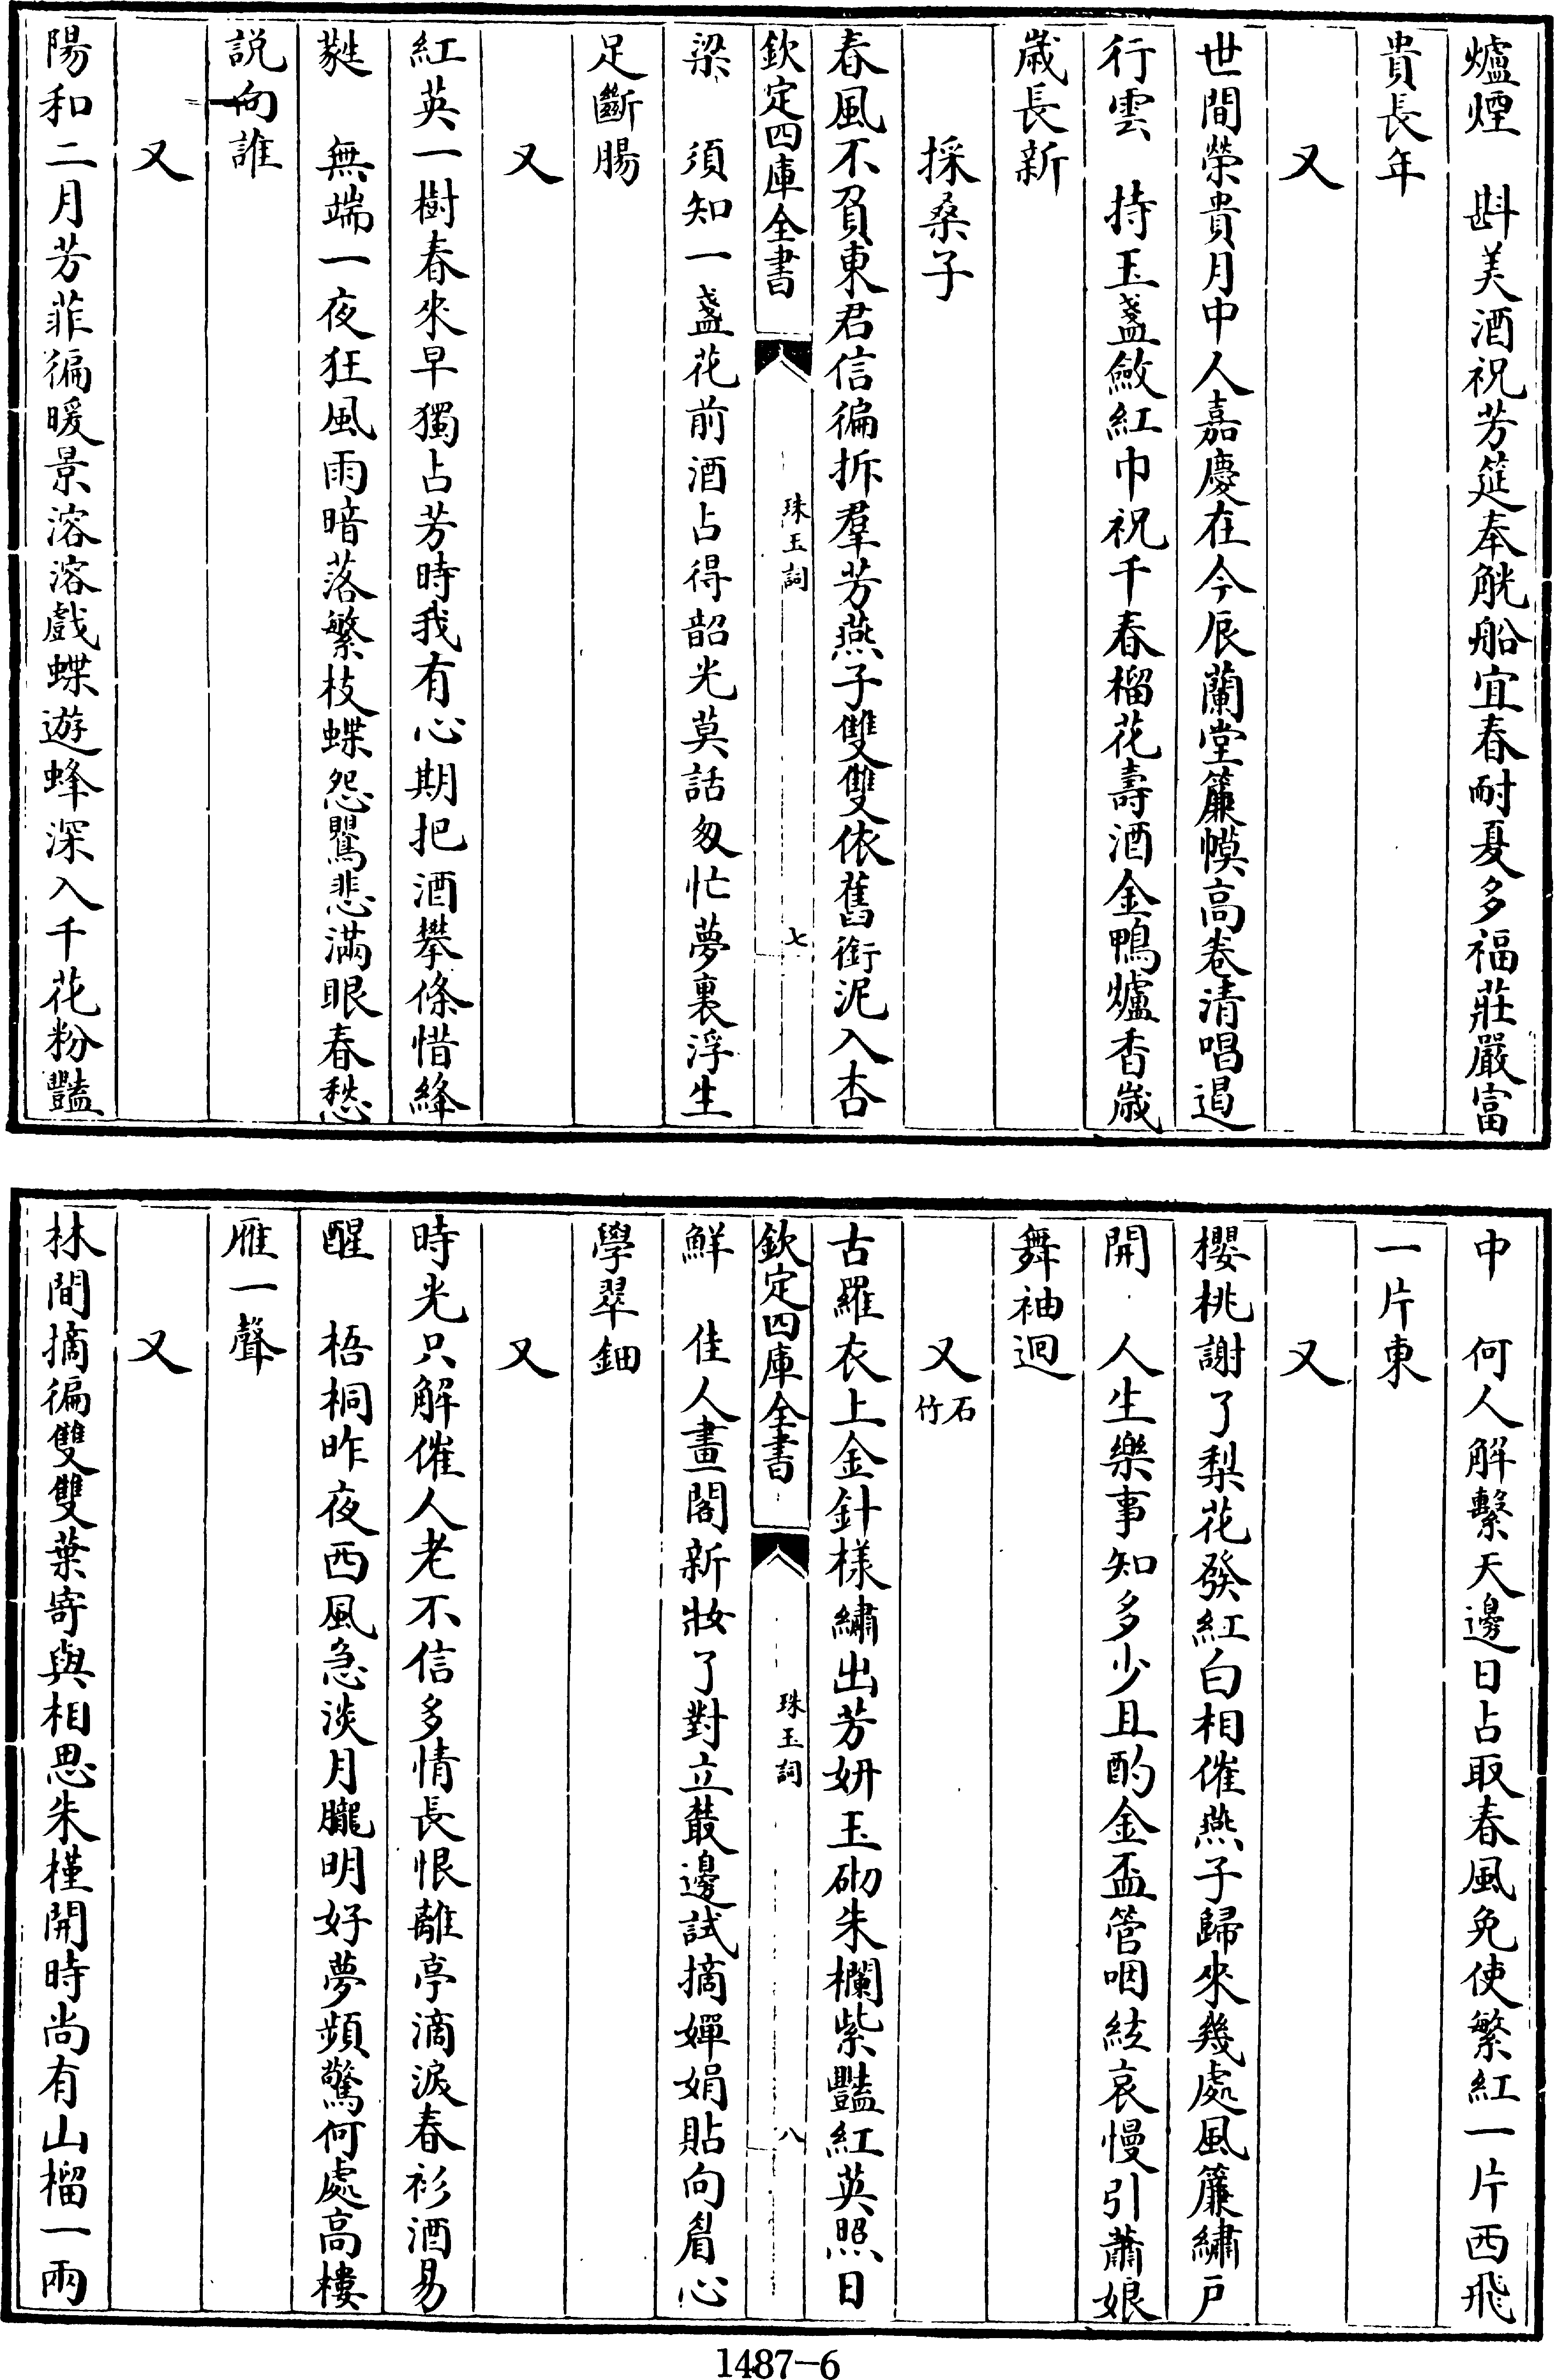 爐煙　斟美酒祝芳筵奉觥船宜春耐夏多福莊嚴富
貴長年
又
世間榮貴月中人嘉慶在今辰蘭堂簾幙高卷清唱遏
行雲　持玉盞斂紅巾祝千春榴花壽酒金鴨爐香歲
歲長新
採桑子
春風不負東君信徧拆羣芳燕子雙雙依舊銜泥入杏
欽定四庫全書
珠玉詞
七
梁　須知一盞花前酒占得韶光莫話匆忙夢裏浮生
足斷腸
又
紅英一樹春來早獨占芳時我有心期把酒攀條惜絳
蕤　無端一夜狂風雨暗落繁枝蝶怨鶯悲滿眼春愁
説向誰
又
陽和二月芳菲徧暖景溶溶戲蝶遊蜂深入千花粉豔
中　何人解繫天邊日占取春風免使繁紅一片西飛
一片東
又
櫻桃謝了梨花發紅白相催燕子歸來幾處風簾繡戸
開　人生樂事知多少且酌金盃管咽絃哀慢引蕭娘
舞袖迴
又石竹
古羅衣上金針様繡出芳妍玉砌朱欄紫豔紅英照日
欽定四庫全書
珠玉詞
八
鮮　佳人畫閣新妝了對立叢邊試摘嬋娟貼向眉心
學翠鈿
又
時光只解催人老不信多情長恨離亭滴淚春衫酒易
醒　梧桐昨夜西風急淡月朧明好夢頻驚何處高樓
雁一聲
又
林間摘徧雙雙葉寄與相思朱槿開時尚有山榴一兩
1487-6